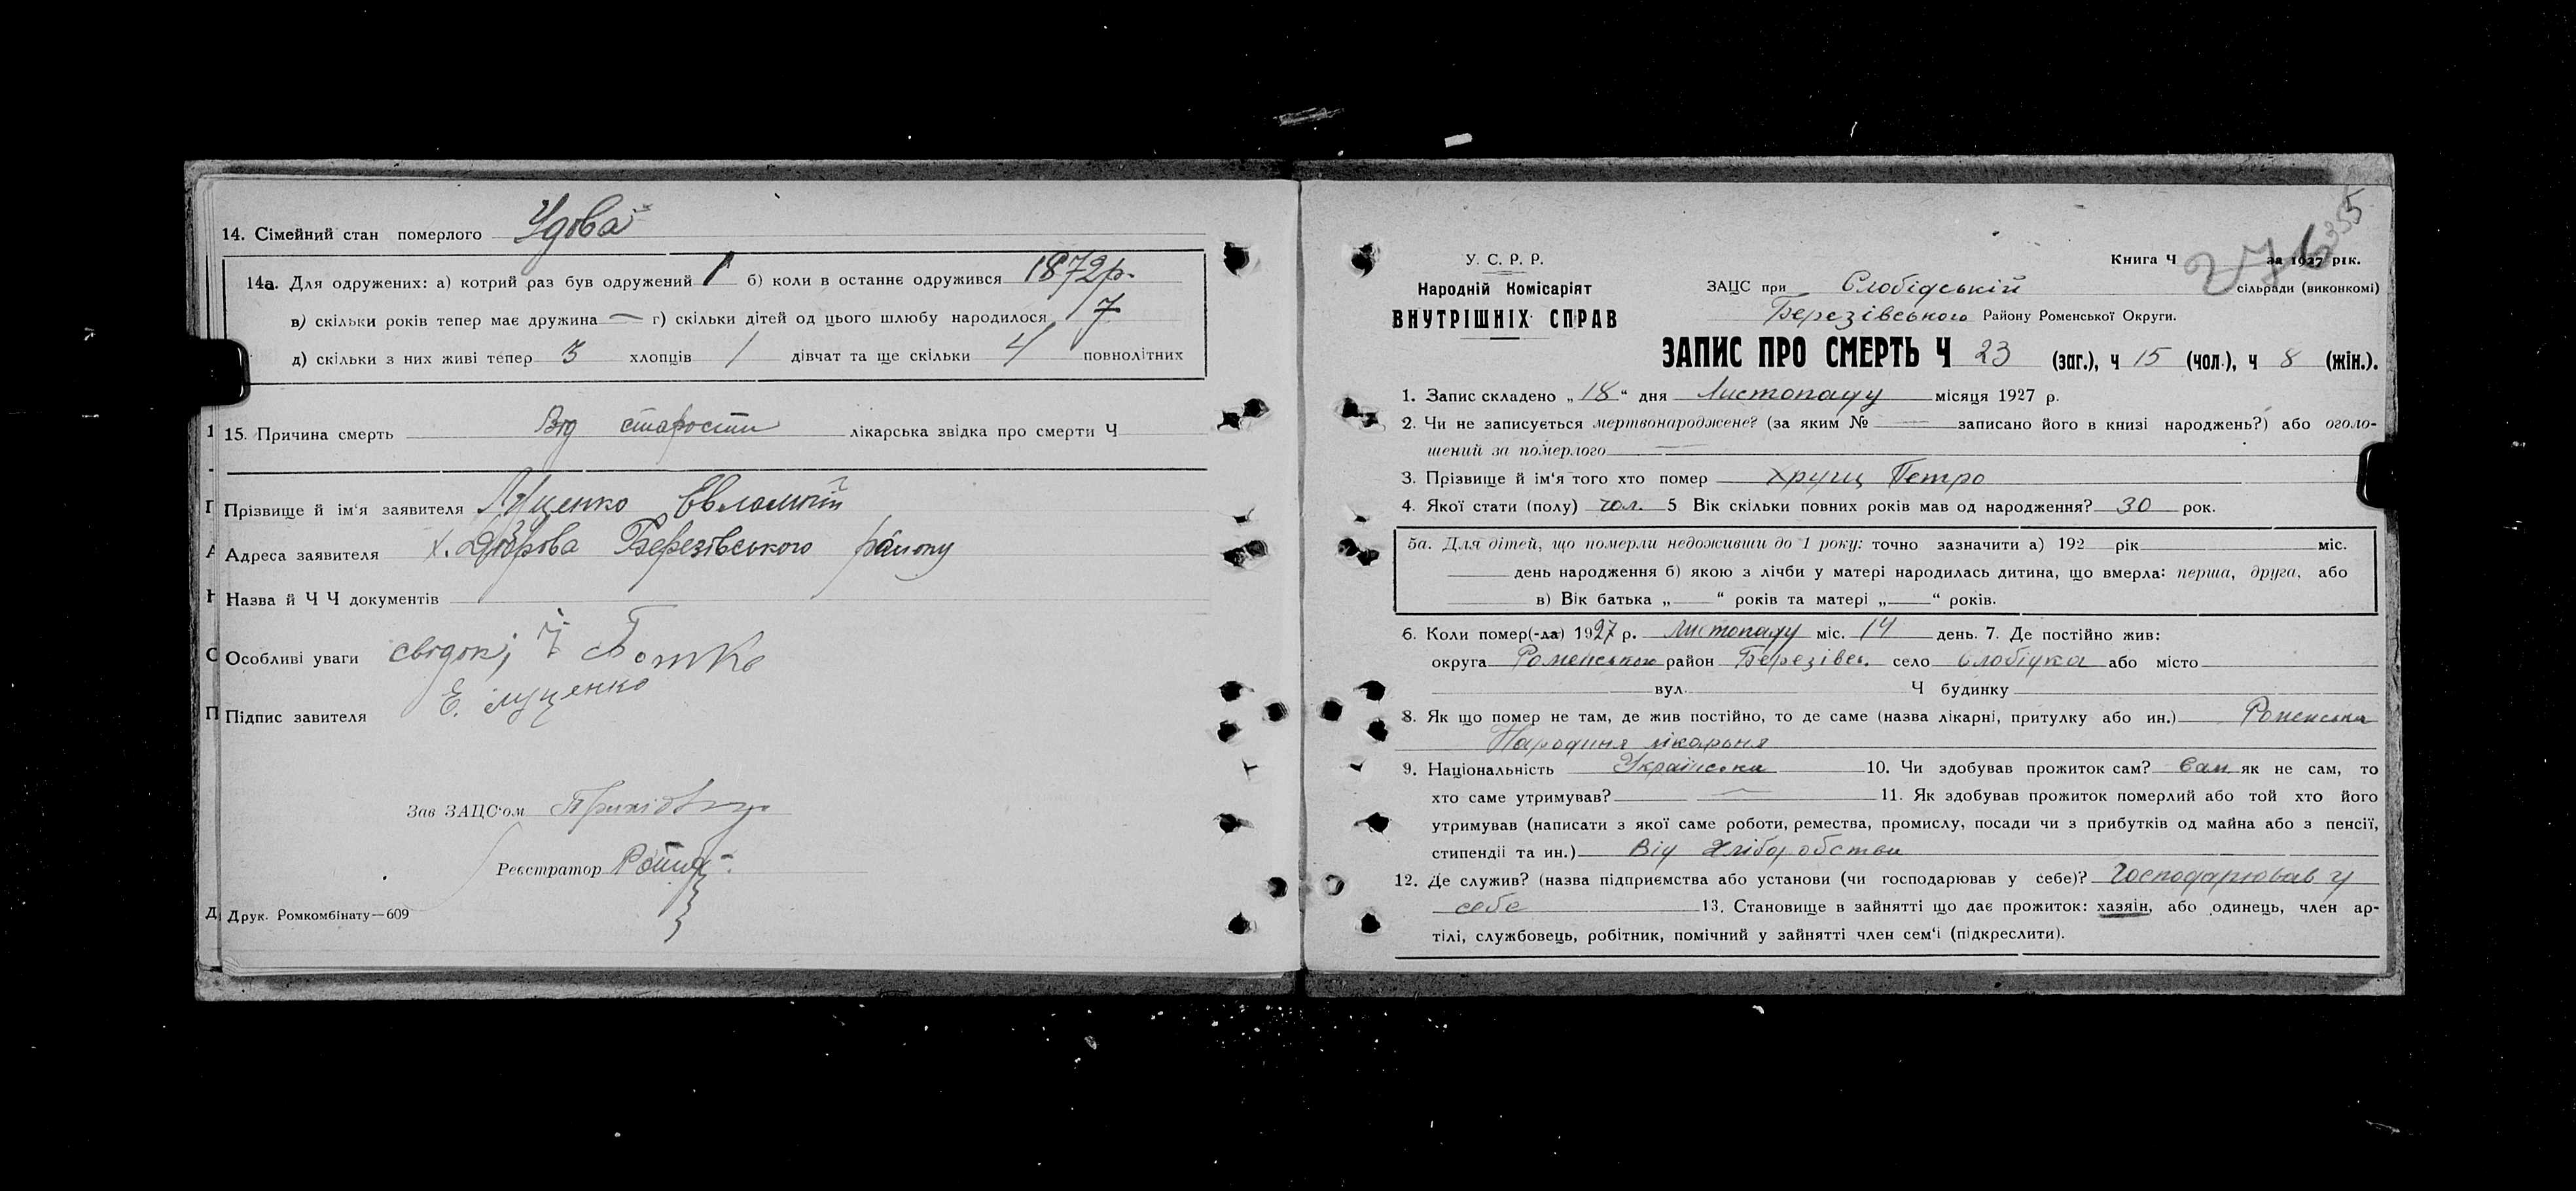 14. Сімейний стан померлого Удова
14а. Для одружених: а) котрий раз був одружений 1 б) коли в останнє одружився 1872р.
в) скільки років тепер має дружина — г) скільки дітей од цього шлюбу народилося 7
д) скільки з них живі тепер 3 хлопців 1 дівчат та ще скільки 4 повнолітних
15. Причина смерть Від старости лікарська звідка про смерти Ч
Прізвище й ім'я заявителя Луценко Евлампій
Адреса заявителя х. Діброва Березівського району
Назва й Ч Ч документів
Особливі уваги свідок;
Е. Луценко
Підпис завителя
Зав ЗАЦС'ом
Реєстратор
Друк. Ромкомбінату—609
355
276
У. С. Р. Р.
Книга Ч за 1927 рік.
Народній Комісаріят
ВНУТРІШНІХ СПРАВ
ЗАЦС при Слобідській сільради (виконкомі)
Березівського Району Роменської Округи.
ЗАПИС ПРО СМЕРТЬ Ч 23 (заг.), ч 15 (чол.), ч 8 (жін.).
1. Запис складено „ 18 “ дня Листопаду місяця 1927 р.
2. Чи не записується мертвонароджене? (за яким № — записано його в книзі народжень?) або оголо-
шений за померлого —
3. Прізвище й ім'я того хто помер Хрущ Петро
4. Якої стати (полу) чол. 5 Вік скільки повних років мав од народження? 30 рок.
5а. Для дітей, що померли недоживши до 1 року: точно зазначити а) 192 рік міс.
день народження б) якою з лічби у матері народилась дитина, що вмерла: перша, друга, або
в) Вік батька „ “ років та матері „ “ років.
6. Коли помер(-ла) 1927 р. Листопаду міс. 14 день. 7. Де постійно жив:
округа Роменського район Березівсь. село Слобідка або місто
вул. Ч будинку
8. Як що помер не там, де жив постійно, то де саме (назва лікарні, притулку або ин.) Роменська
Народня лікарьня
9. Національність Українська 10. Чи здобував прожиток сам? Сам як не сам, то
хто саме утримував? — 11. Як здобував прожиток померлий або той хто його
утримував (написати з якої саме роботи, ремества, промислу, посади чи з прибутків од майна або з пенсії,
стипендії та ин.) Від Хліборобства
12. Де служив? (назва підприємства або установи (чи господарював у себе)? Господарював у
себе 13. Становище в зайнятті що дає прожиток: хазяін, або одинець, член ар-
тілі, службовець, робітник, помічний у зайнятті член сем'ї (підкреслити).